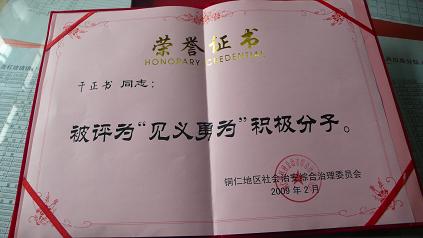 荣誉证书
HONORARY CREDENTIAL
干正书 同志：
被评为“见义勇为”积极分子。
铜仁地区社会治安综合治理委员会
2009 年 2 月